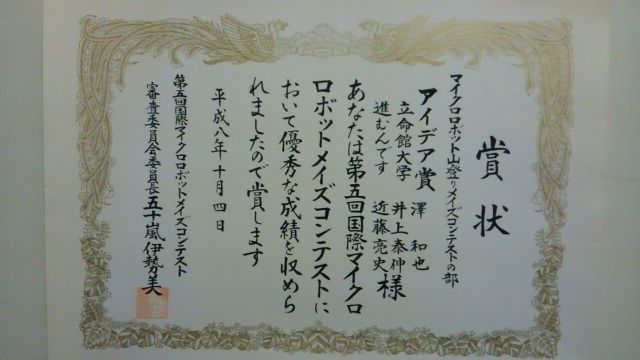 賞状
マイクロロボット山登りメイズコンテストの部
アイデア賞
立命館大学 澤 和也
進むんです 井上泰伸
近藤亮史 様
あなたは第五回国際マイクロ
ロボットメイズコンテストに
おいて優秀な成績を収めら
れましたので賞します
平成八年十月四日
第五回国際マイクロロボットメイズコンテスト
審査委員会委員長 五十嵐伊勢美